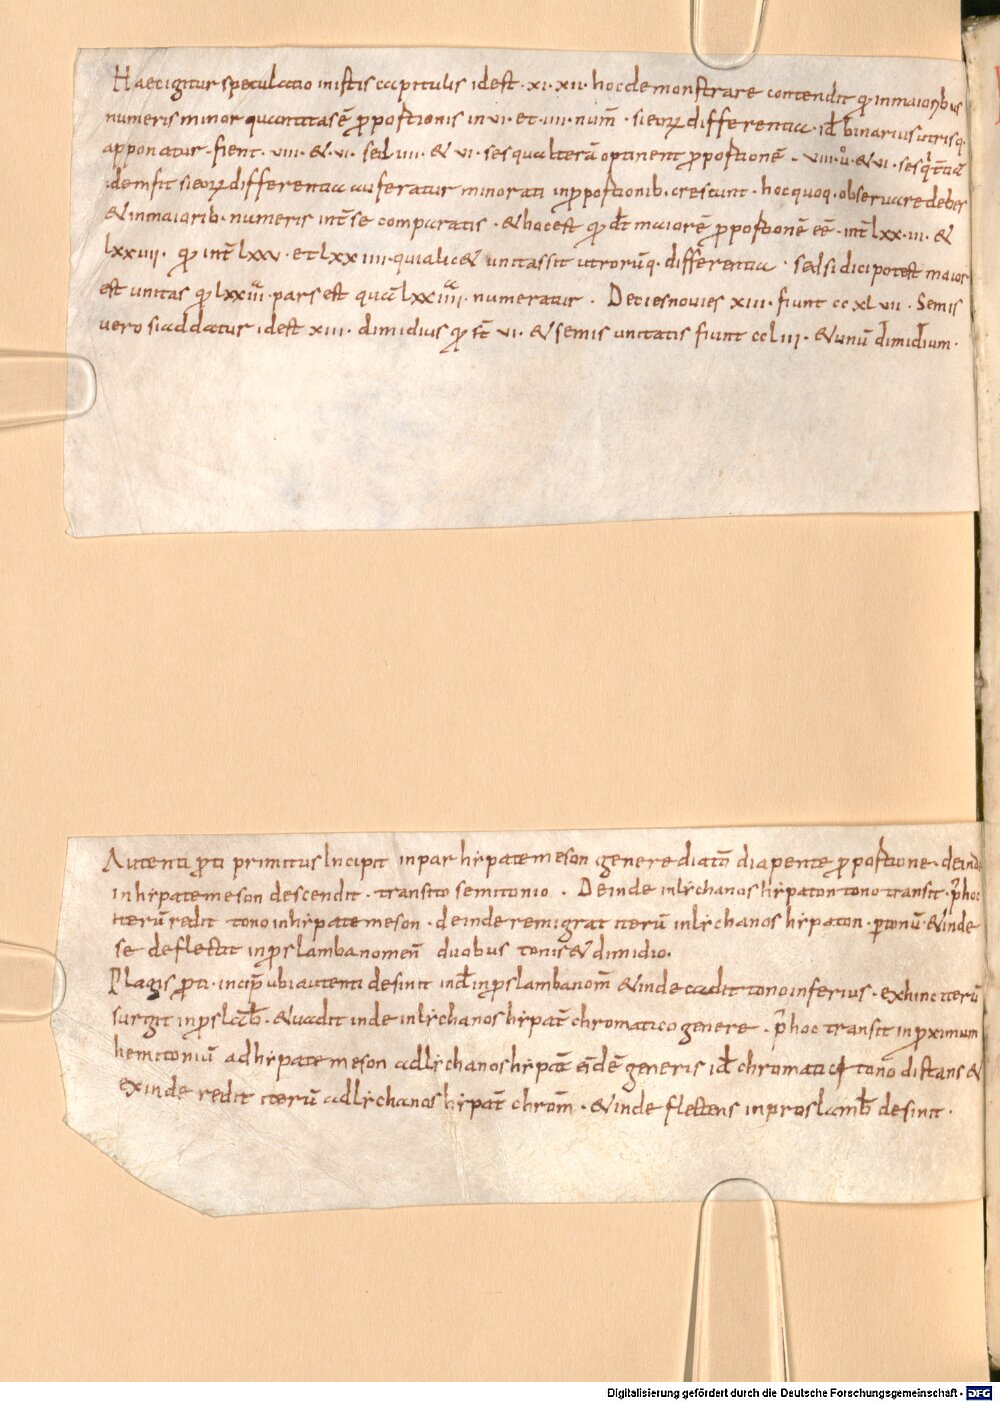 Haec igitur speculatio in istis capitulis idest · xi · xii · hoc demonstrare contendit qđ in maioribus
numeris minor quantitatasē ꝓpostionis in vi · et · iiii · num̄ · si eoꝝ differentia · id̄ binarius utrisq·
apponatur · fient · viii · & · vi · sed iiii · & vi · sesqualterā optinent ꝓpostionē · viii · ů · & vi · sesq̇tciā
idem fit si eoꝝ differentia auferatur minorati in ꝓpostionib · crescunt · hoc quoq · observare debes
& in maiorib · numeris int̄ se comparatis · & hoc est qđ dt̄ maiorē ꝓpostionē eē · int̄ lxx · iii · &
lxxiiii · qđ int̄ lxxv · et lxxiiii · qui alic& unitas sit utrorūq · differentia · sed si dici potest maior
est unitas qđ lxxiii pars est quā lxxiiii · numeratur · Decies novies xiii · fiunt ccxlvii · Semis
vero si addatur idest xiii · dimidius qđ st̄ vi · & semis unitatis fiunt ccliii · & unū dimidium ·
Autenti ꝓti primitus Incipit in parhypatemeson genere diaton̄ diapente ꝓpostione · deinde
in hypatemeson descendit · transito semitonio · Deinde in lychanos hypaton tono transit · p̄ hoc
iterū redit tono in hypatemeson · deinde remigrat iterū in lychanos hypaton · ꝑ tonū · & inde
se deflectit in ꝓslambanomen̄ duobus tonis & dimidio ·
Plagis ꝓti · incip̄ ubi autenti desinit ind̄ in ꝓslambanom̄ & inde cadit tono inferius · exhinc iterū
surgit in ꝓslāb̄ · & vadit inde in lychanos hypat̄ chromatico genere · p̄ hoc transit in ꝓximum
hemitoniū ad hypatemeson ad lychanos hypat̄ eādē generis id̄ chromatici tono distans &
exinde redit iterū ad lychanos hypat̄ chrom̄ · & inde flectens in proslamb̄ desinit ·
Digitalisierung gefördert durch die Deutsche Forschungsgemeinschaft · DFG